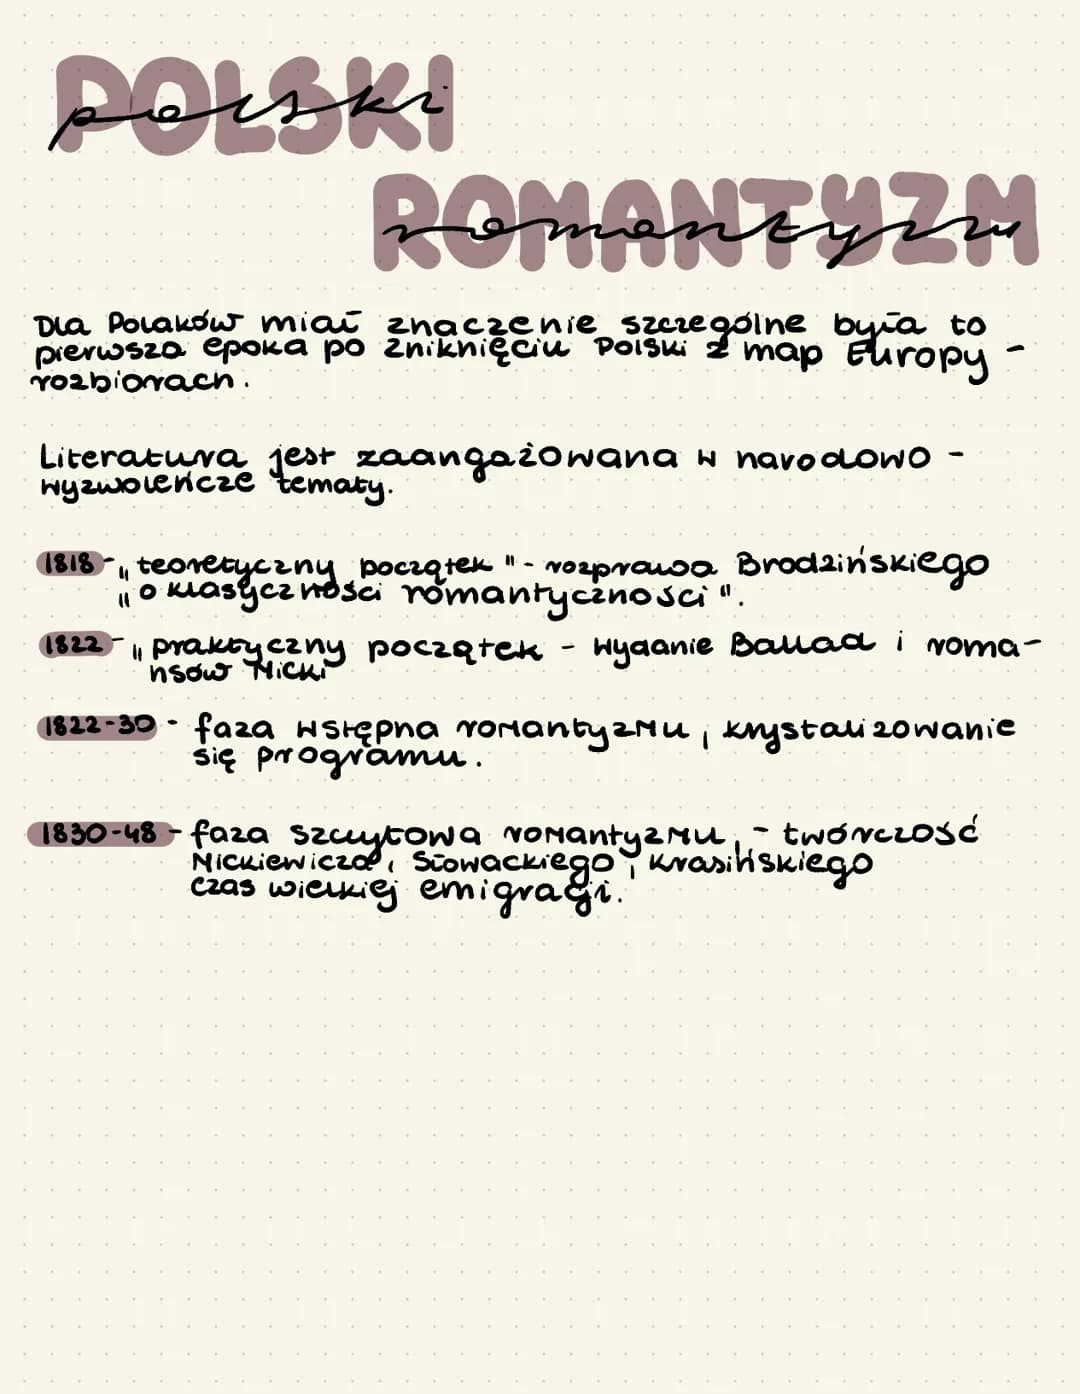 POLSKI
polski
ROMANTYZM
romantyzm
Dla Polaków miał znaczenie szczególne była to
pierwsza epoka po zniknięciu Polski z map Europy -
rozbiorach.
Literatura jest zaangażowana w narodowo -
wyzwoleńcze tematy.
1818 - „teoretyczny początek" - rozprawa Brodzińskiego
„o klasyczności romantyczności".
1822 - „praktyczny początek - wydanie Ballad i roma-
nsów Micki
1822-30 - faza wstępna romantyzmu, krystalizowanie
się programu.
1830-48 - faza szczytowa romantyzmu, - twórczość
Mickiewicza, Słowackiego, Krasińskiego
czas wielkiej emigracji.